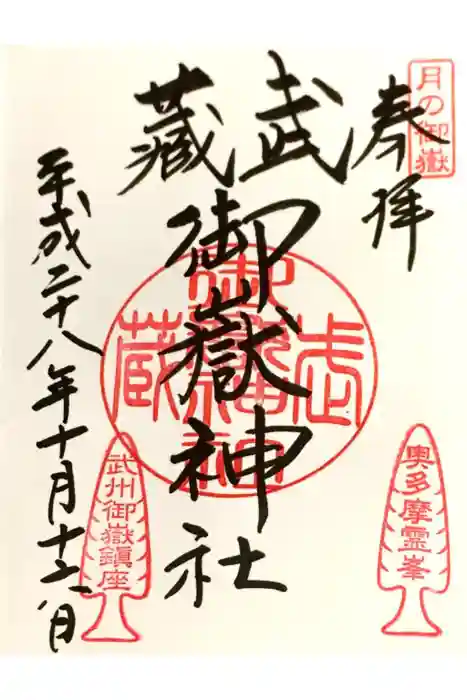 月の御嶽
奉拝
武蔵
御嶽神社
奥多摩霊峯
武州御嶽鎮座
平成二十八年十月十六日